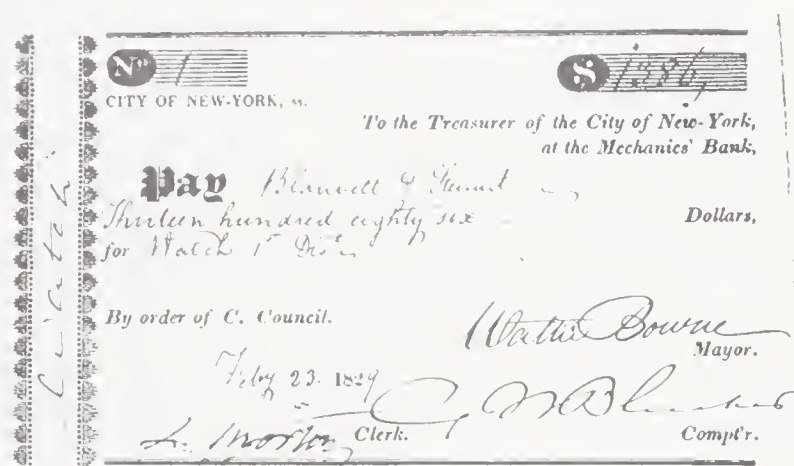 No 1 $ 1386,
CITY OF NEW-YORK, ss.
To the Treasurer of the City of New-York,
at the Mechanics' Bank,
Pay Blauvelt &
Thirteen hundred eighty six Dollars,
for Watch 1st Dist
By order of C. Council.
Walter Bowne
Mayor.
Feby 23. 1829
J. Morton Clerk. Compt'r.
Watch